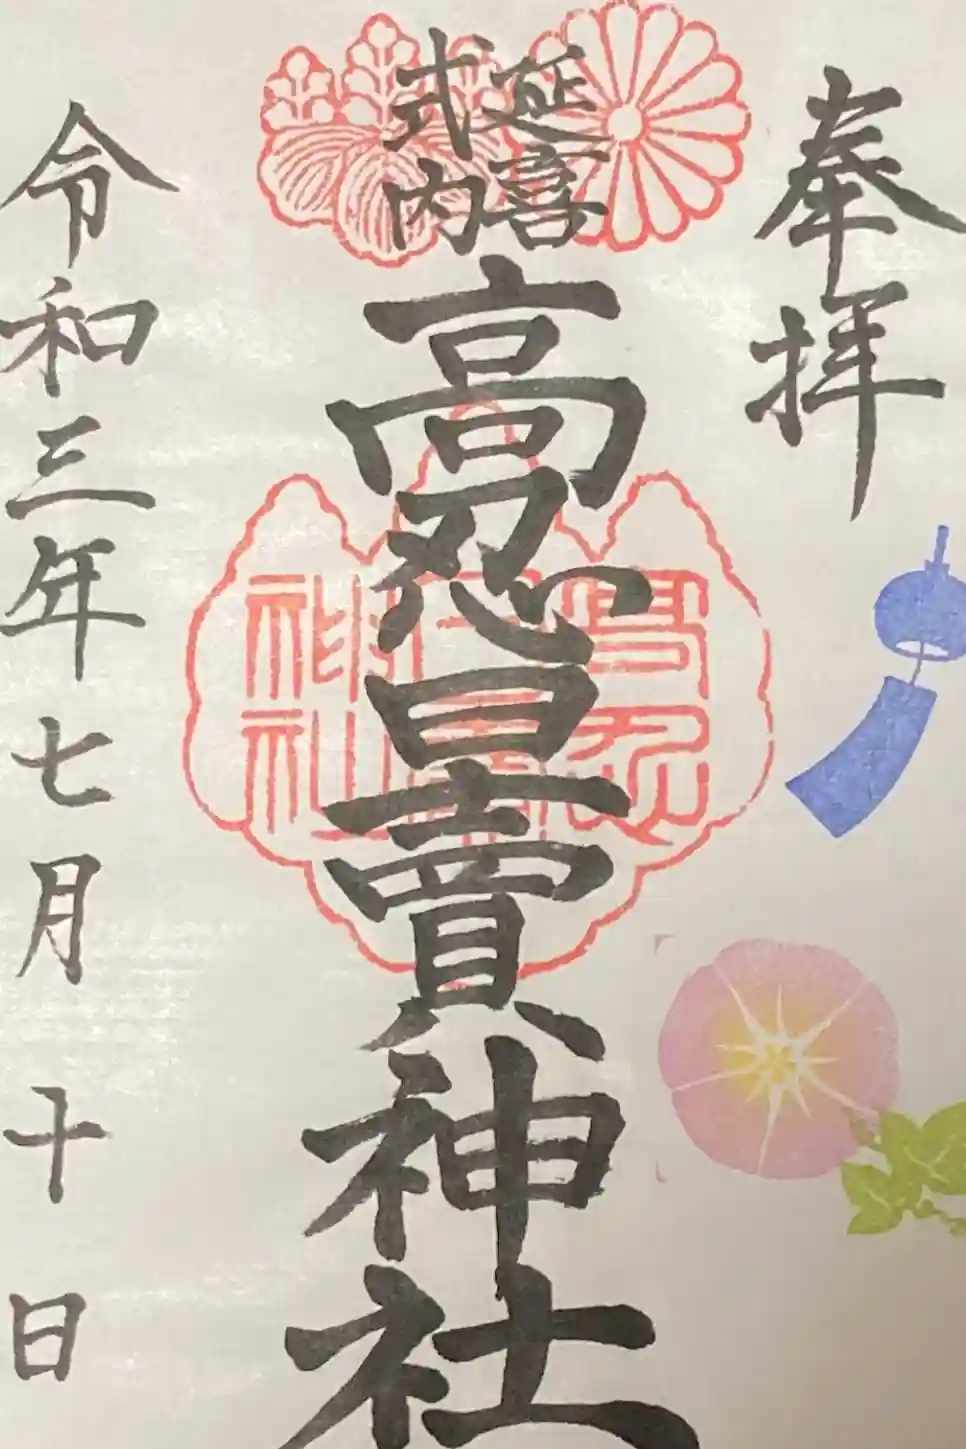 奉拝
延喜
式内
高忍日賣神社
令和三年七月十日
高忍
神社